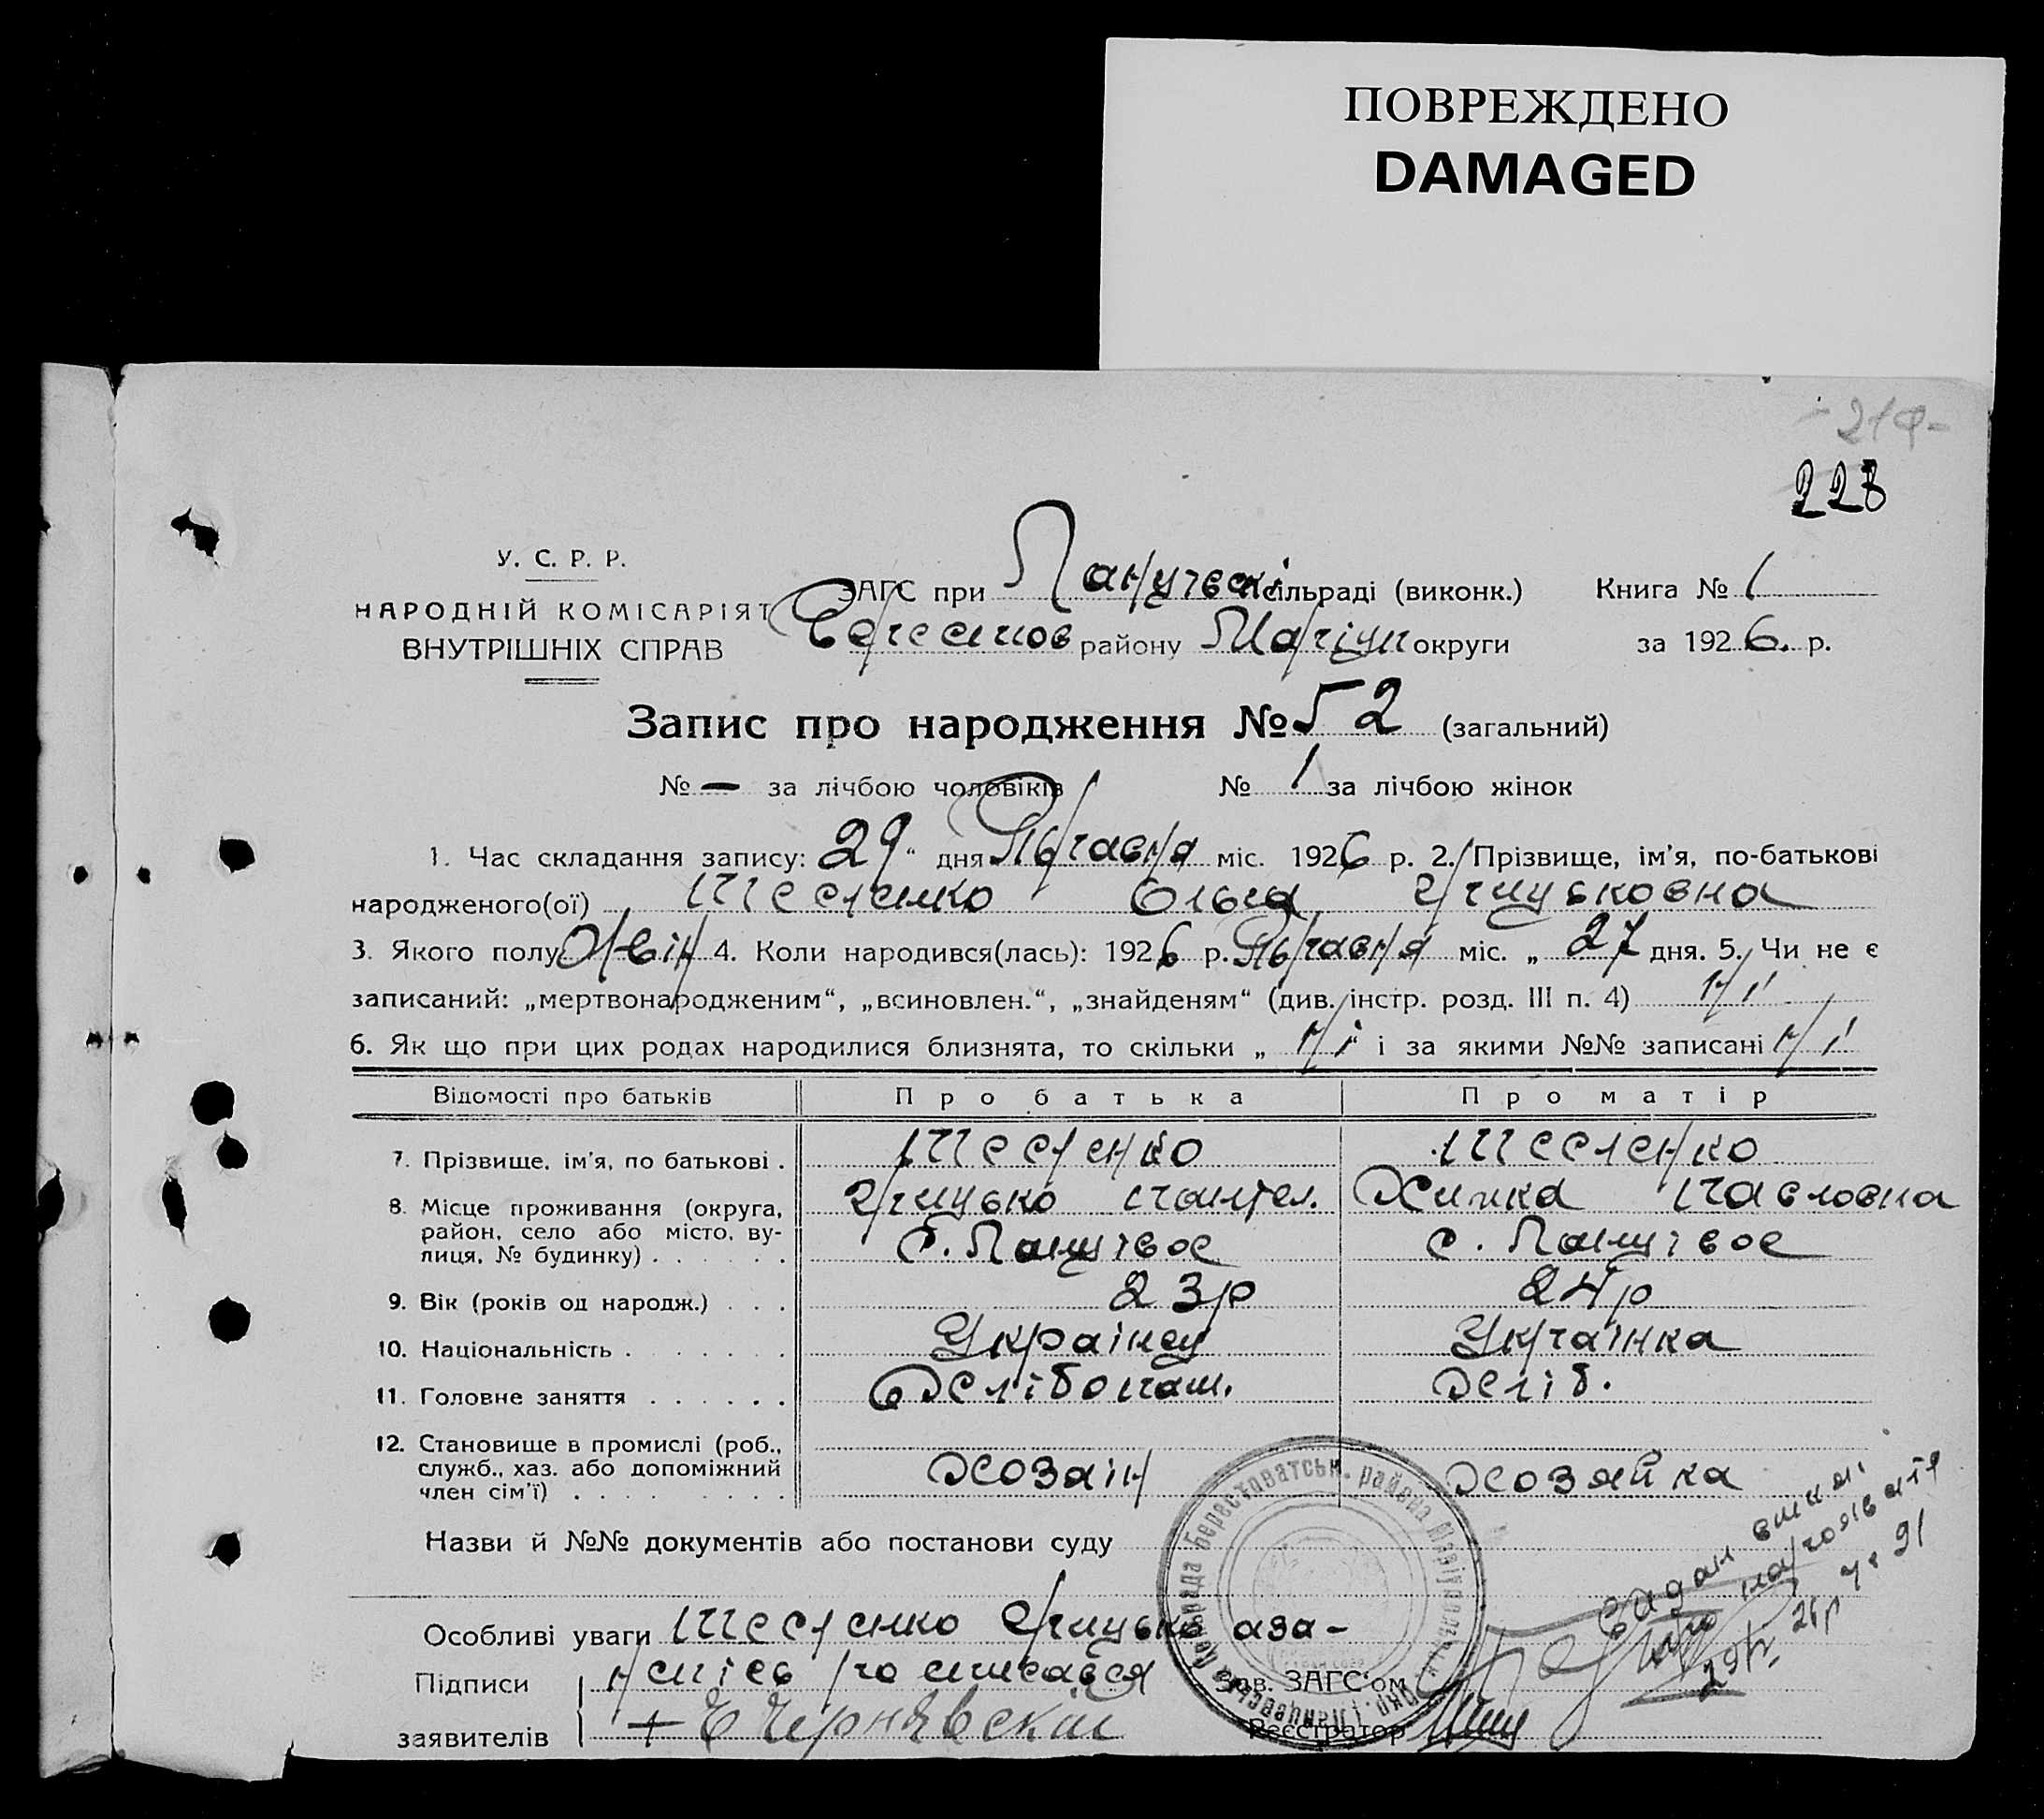 ПОВРЕЖДЕНО
DAMAGED
228
У. С. Р. Р.
НАРОДНІЙ КОМІСАРІЯТ
ВНУТРІШНІХ СПРАВ
ЗАГС при сільраді (виконк.)
району Маріуп округи
Книга № 1
за 1926. р.
Запис про народження № 52 (загальний)
№ — за лічбою чоловіків № 1 за лічбою жінок
1. Час складання запису: 29 " дня міс. 1926 р. 2. Прізвище, ім'я, по-батькові
народженого(ої) Тесленко Ольга Грицьковна
3. Якого полу Жвін 4. Коли народився(лась): 1926 р. міс. „ 27 дня. 5. Чи не є
записаний: „мертвонародженим“, „всиновлен.“, „знайденям“ (див. інстр. розд. III п. 4) ні
6. Як що при цих родах народилися близнята, то скільки „ ні “ і за якими №№ записані ні
Відомості про батьків Про батька Про матір
7. Прізвище, ім'я, по батькові . Тесленко Тесленко
8. Місце проживання (округа, район, село або місто, вулиця, № будинку) . . . . . . Грицько Пантел. Химка Павловна
с. Ланцівое с. Ланцівое
9. Вік (років од народж.) . . . 23р 24р
10. Національність . . . . . . . Українец Українка
11. Головне заняття . . . . . . Хлібопаш. Хліб.
12. Становище в промислі (роб., служб., хаз. або допоміжний член сім'ї) . . . . . . . . . Хозаін Хозяйка
Назви й №№ документів або постанови суду
Особливі уваги Тесленко Грицько аза-
Підписи
заявителів
Зав. ЗАГС'ом
Реєстратор